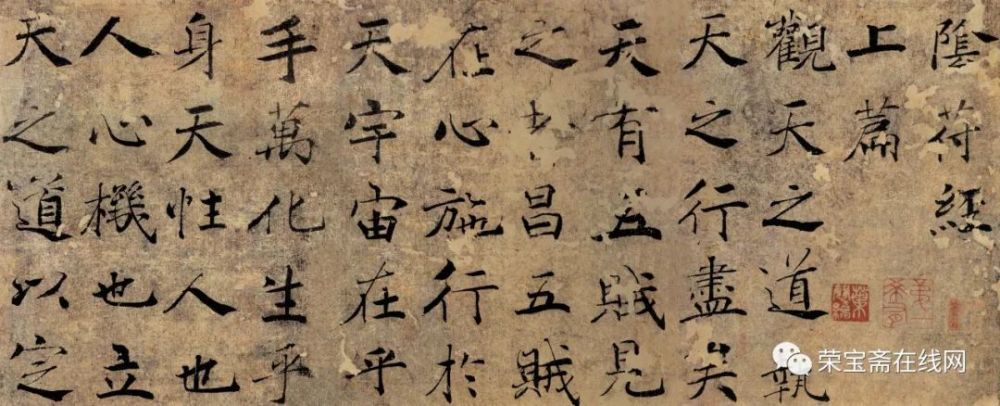 陰符經
上篇
觀天之道執
天之行盡矣
天有五賊見
之者昌五賊
在心施行於
天宇宙在乎
手萬化生乎
身天性人也
人心機也立
天之道以定
荣宝斋在线网